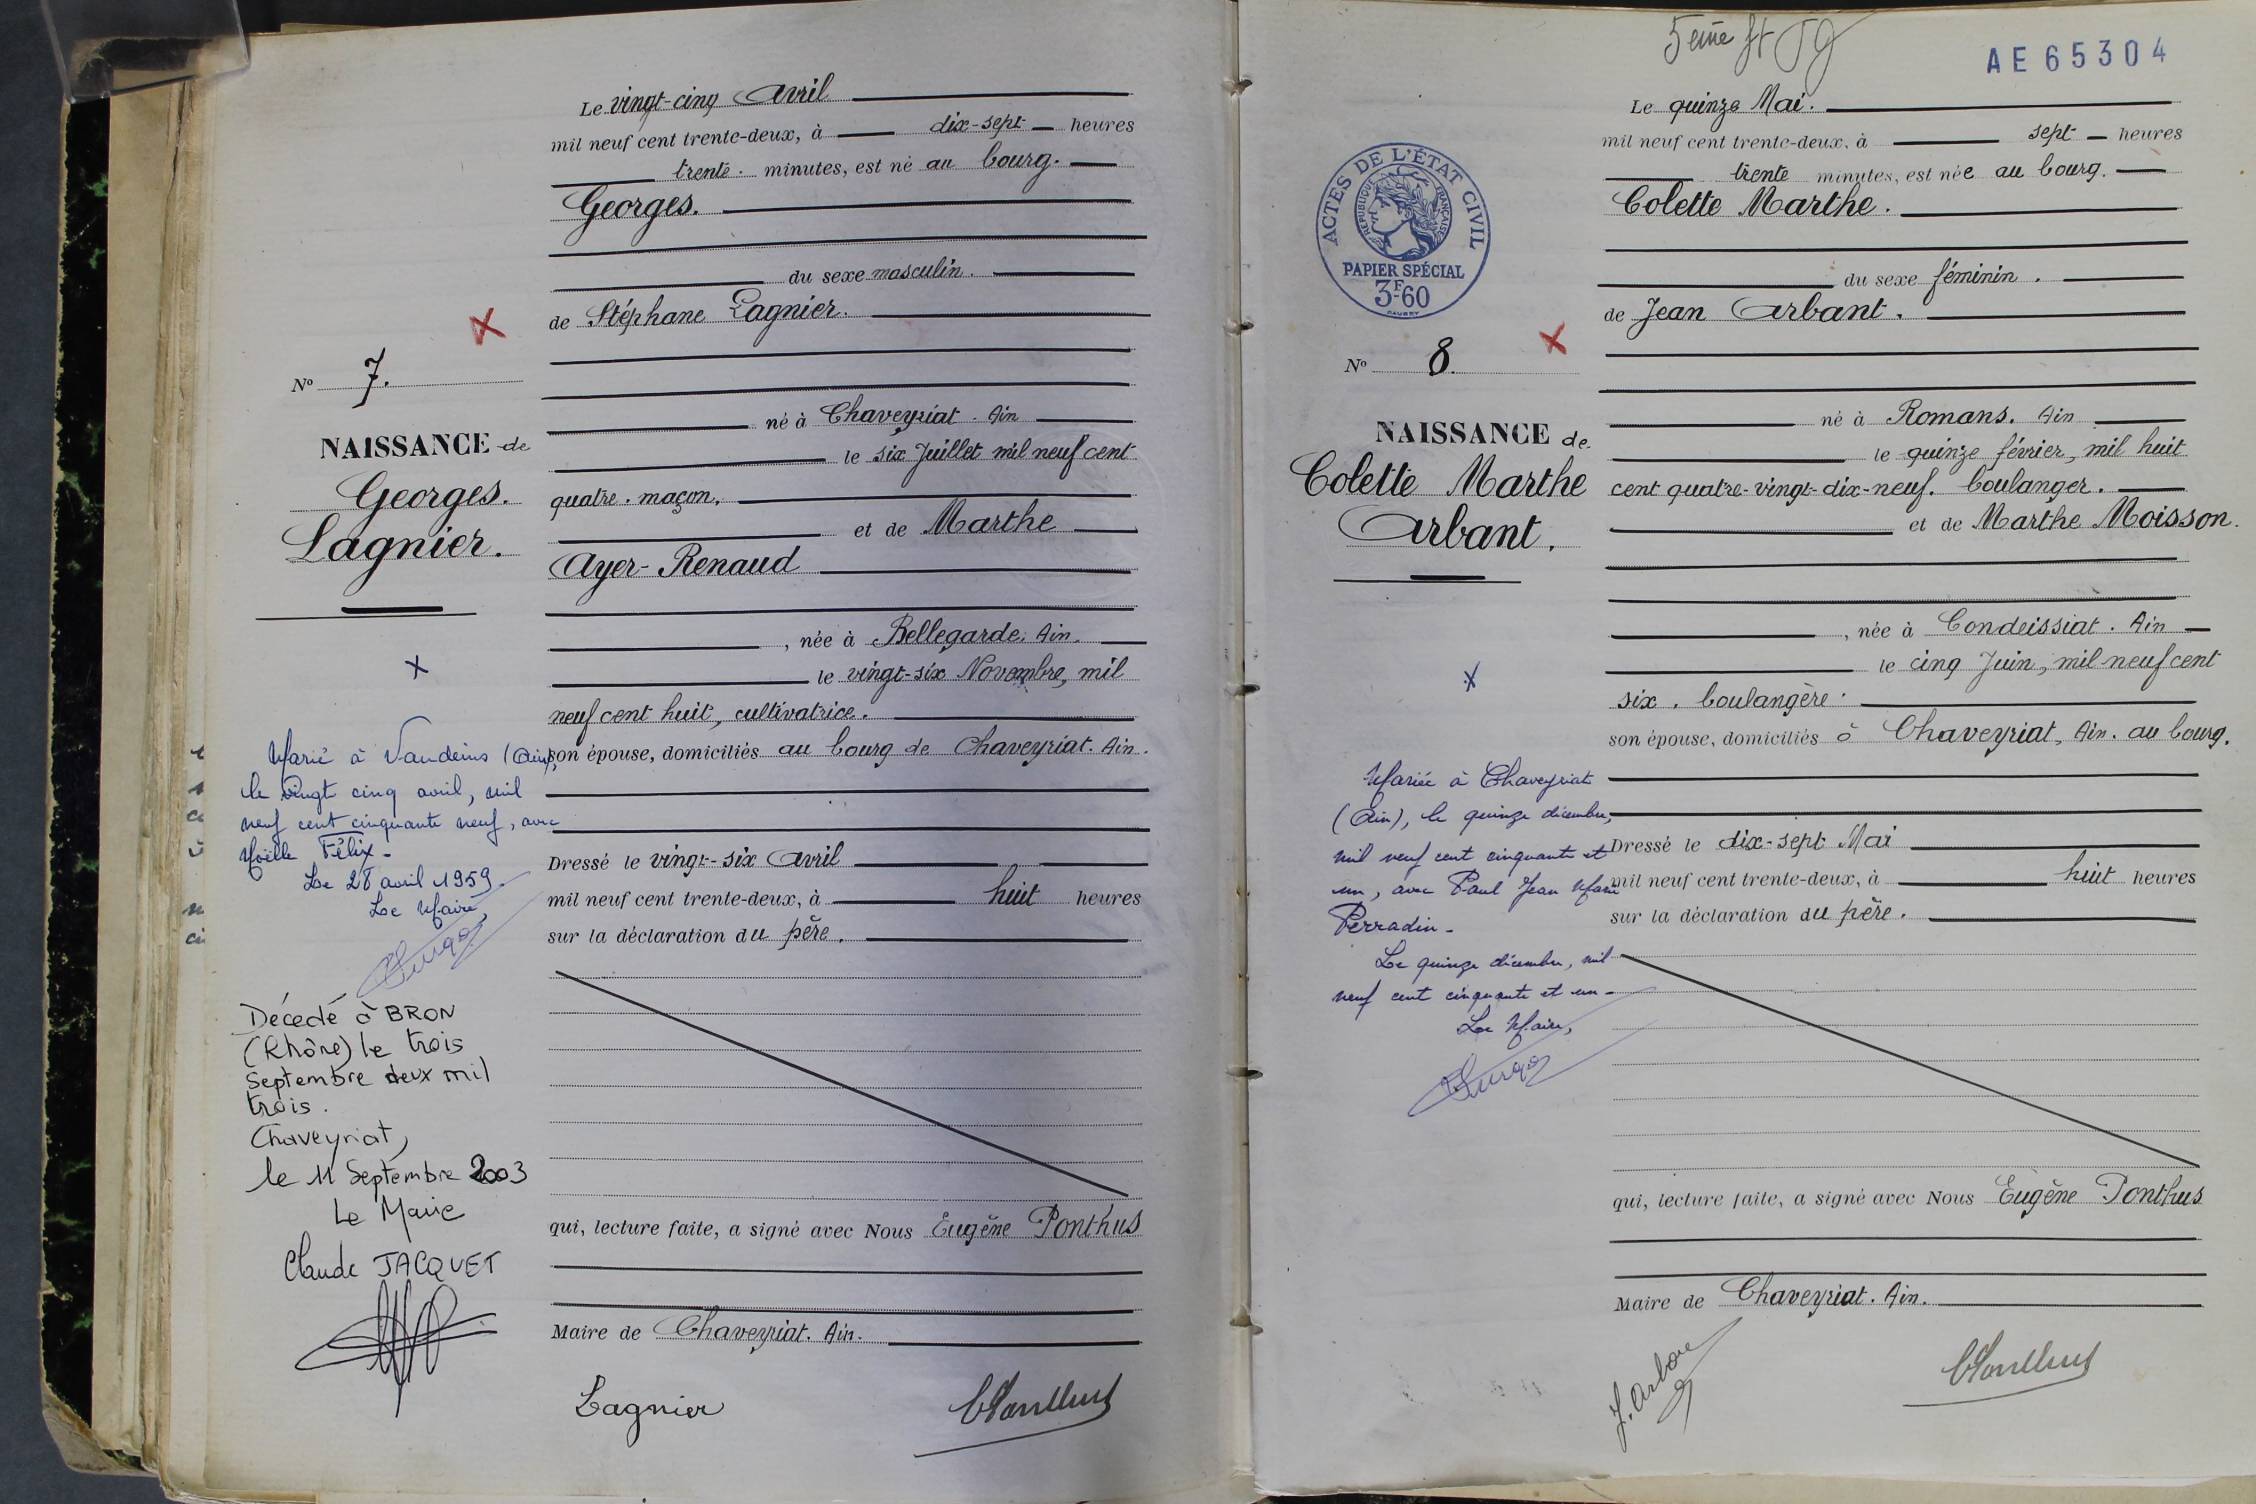 Le vingt-cinq Avril
mil neuf cent trente-deux, à dix-sept heures
trente. minutes, est né au bourg.
Georges.
du sexe masculin.
de Stéphane Lagnier.
né à Chaveyriat. Ain
le six Juillet mil neuf cent
quatre. maçon,
et de Marthe
Ayer-Renaud
, née à Bellegarde. Ain.
le vingt-six Novembre, mil
neuf cent huit, cultivatrice.
son épouse, domiciliés au bourg de Chaveyriat. Ain.
Dressé le vingt-six Avril
mil neuf cent trente-deux, à huit heures
sur la déclaration du père.
qui, lecture faite, a signé avec Nous Eugène Ponthus
Maire de Chaveyriat. Ain.
Lagnier
N° 7.
NAISSANCE de
Georges.
Lagnier.
Marié à Vandeins (Ain),
le vingt cinq avril, mil
neuf cent cinquante neuf, avec
Noëlle Félix-
Le 28 avril 1959.
Le Maire,
Décédé à BRON
(Rhône) le trois
Septembre deux mil
trois.
Chaveyriat,
le 11 Septembre 2003
Le Maire
Claude JACQUET
5ème ft
AE65304
ACTES DE L'ÉTAT CIVIL
RÉPUBLIQUE FRANÇAISE
PAPIER SPÉCIAL
3F60
Le quinze Mai.
mil neuf cent trente-deux, à sept heures
trente minutes, est née au bourg.
Colette Marthe.
du sexe féminin.
de Jean Arbant.
né à Romans. Ain
le quinze février, mil huit
cent quatre-vingt-dix-neuf. boulanger.
et de Marthe Moisson.
, née à Condeissiat. Ain
le cinq Juin, mil neuf cent
six. boulangère.
son épouse, domiciliés à Chaveyriat, Ain. au bourg.
Dressé le dix-sept Mai
mil neuf cent trente-deux, à huit heures
sur la déclaration du père.
qui, lecture faite, a signé avec Nous Eugène Ponthus
Maire de Chaveyriat. Ain.
N° 8.
NAISSANCE de
Colette Marthe
Arbant.
Mariée à Chaveyriat
(Ain), le quinze décembre,
mil neuf cent cinquante et
un, avec Paul Jean Marie
Perradin-
Le quinze décembre, mil
neuf cent cinquante et un-
Le Maire,